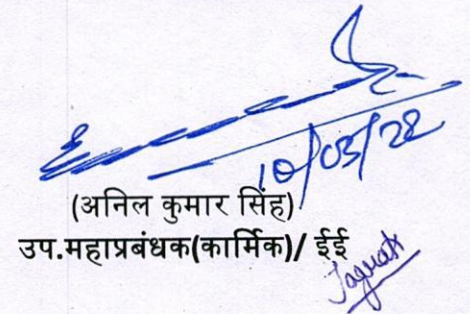 10/03/22
(अनिल कुमार सिंह)
उप.महाप्रबंधक(कार्मिक)/ ईई